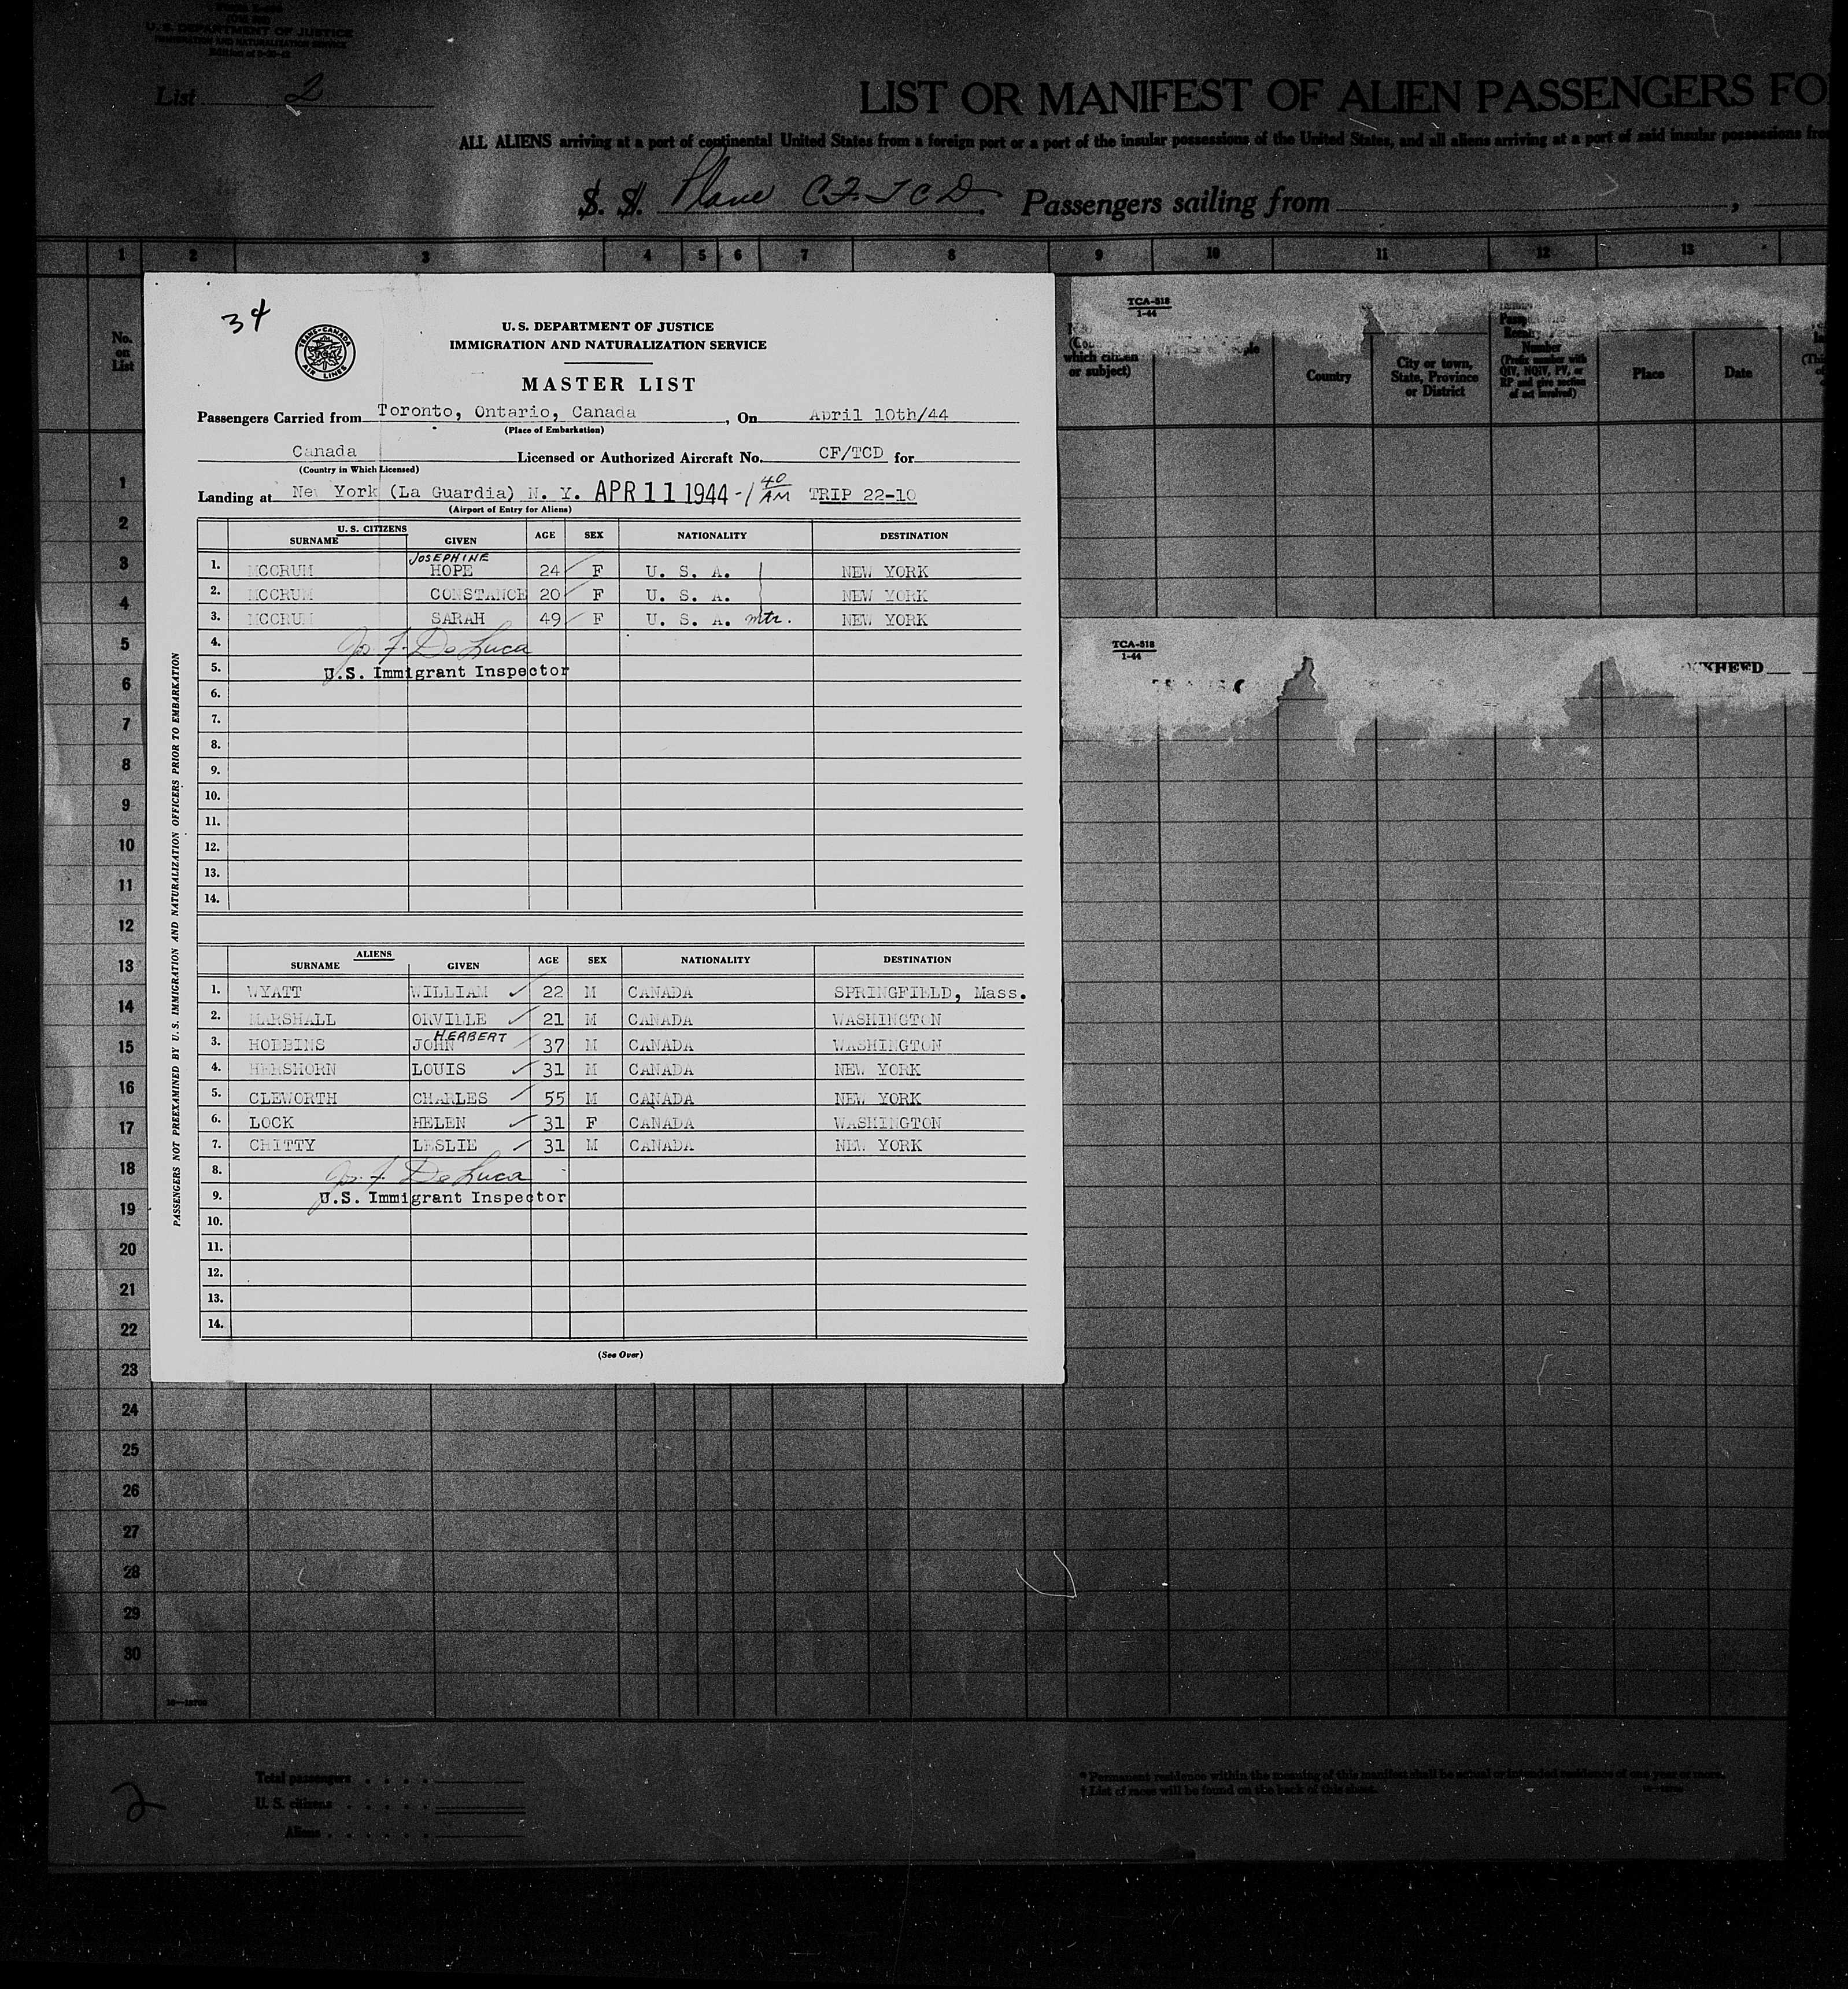 U. S. DEPARTMENT OF JUSTICE
IMMIGRATION AND NATURALIZATION SERVICE
List 2
LIST OR MANIFEST OF ALIEN PASSENGERS FO
ALL ALIENS arriving at a port of continental United States from a foreign port or a port of the insular possessions of the United States, and all aliens arriving at a port of said insular possessions from
S. S. Plane CF-TCD. Passengers sailing from ,
1 2 3 4 5 6 7 8 9 10 11 12 13
34
TRANS-CANADA AIR LINES
U. S. DEPARTMENT OF JUSTICE
IMMIGRATION AND NATURALIZATION SERVICE
MASTER LIST
Passengers Carried from Toronto, Ontario, Canada, On April 10th/44
(Place of Embarkation)
Canada Licensed or Authorized Aircraft No. CF/TCD for
(Country in Which Licensed)
Landing at New York (La Guardia) N. Y. APR 11 1944 -1 40 AM TRIP 22-10
(Airport of Entry for Aliens)
U. S. CITIZENS
SURNAME GIVEN AGE SEX NATIONALITY DESTINATION
JOSEPHINE
1. MCCRUM HOPE 24 F U. S. A. NEW YORK
2. MCCRUM CONSTANCE 20 F U. S. A. NEW YORK
3. MCCRUM SARAH 49 F U. S. A. mtr. NEW YORK
4. Jos. F. De Luca
5. U.S. Immigrant Inspector
6.
7.
8.
9.
10.
11.
12.
13.
14.
ALIENS
SURNAME GIVEN AGE SEX NATIONALITY DESTINATION
1. WYATT WILLIAM 22 M CANADA SPRINGFIELD, Mass.
2. MARSHALL ORVILLE 21 M CANADA WASHINGTON
HERBERT
3. HOBBINS JOHN 37 M CANADA WASHINGTON
4. HERSHORN LOUIS 31 M CANADA NEW YORK
5. CLEWORTH CHARLES 55 M CANADA NEW YORK
6. LOCK HELEN 31 F CANADA WASHINGTON
7. CHITTY LESLIE 31 M CANADA NEW YORK
8. Jos. F. De Luca
9. U.S. Immigrant Inspector
10.
11.
12.
13.
14.
(See Over)
PASSENGERS NOT PREEXAMINED BY U. S. IMMIGRATION AND NATURALIZATION OFFICERS PRIOR TO EMBARKATION
No. on List
1
2
3
4
5
6
7
8
9
10
11
12
13
14
15
16
17
18
19
20
21
22
23
24
25
26
27
28
29
30
TCA-518
1-44
which citizen
or subject)
Country
City or town,
State, Province
or District
Number
(Prefix number with
QIV, NQIV, PV, or
RP and give section
of act involved)
Place
Date
TCA-518
1-44
KHEED
2
Total passengers
U. S. citizens
Aliens
* Permanent residence within the meaning of this manifest shall be actual or intended residence of one year or more.
† List of races will be found on the back of this sheet.